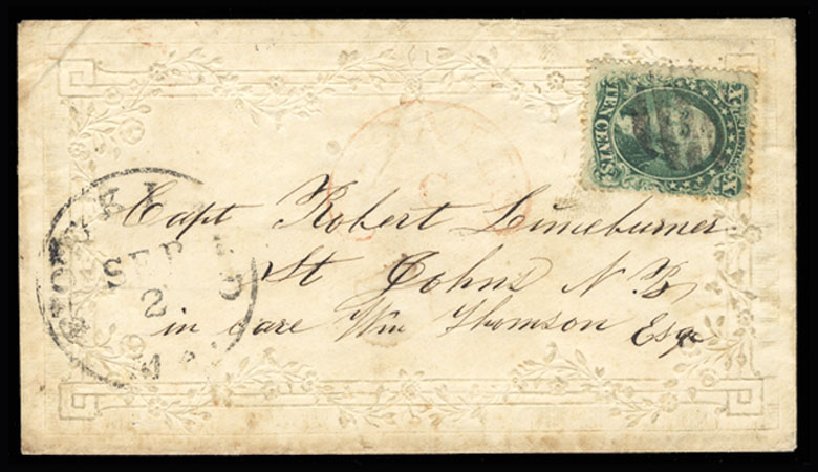 TEN CENTS.
X
X
Capt Robert Limeburner
St Johns N B,
in care Wm Thomson Esqr
SEP
2